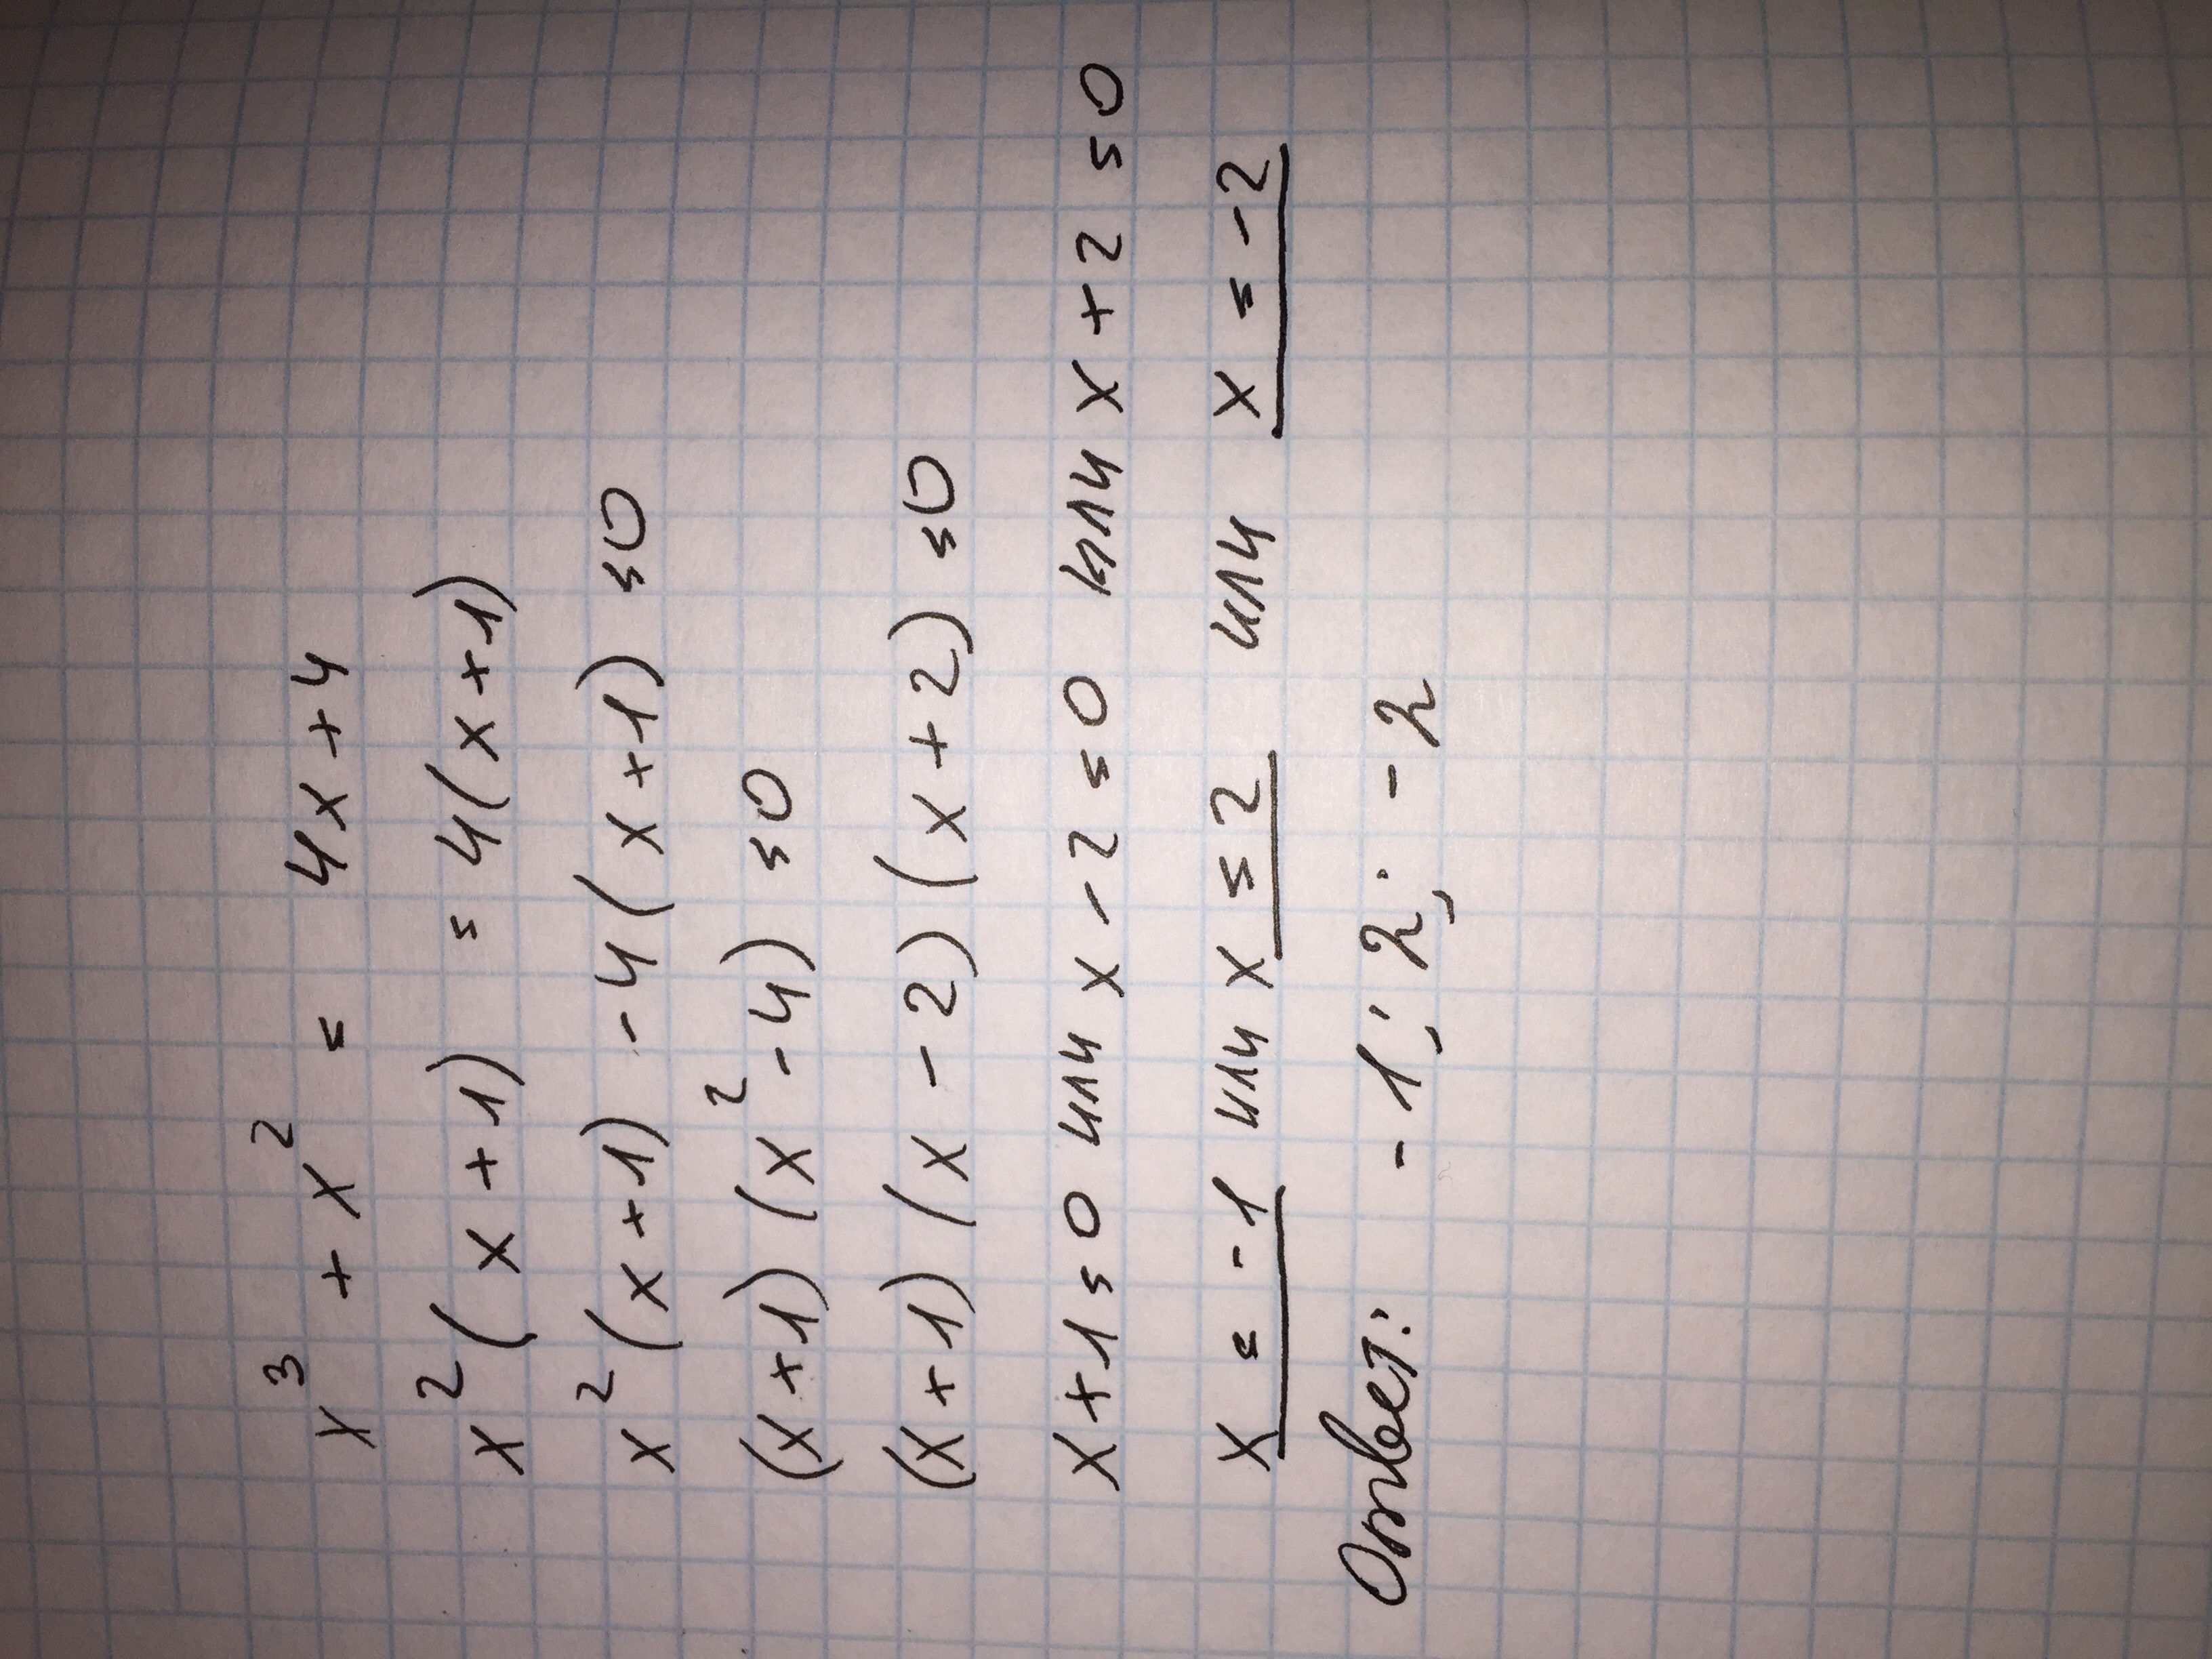 x³ + x² = 4x + 4
x²(x+1) = 4(x+1)
x²(x+1) - 4(x+1) = 0
(x+1)(x² - 4) = 0
(x+1)(x - 2)(x + 2) = 0
x+1 = 0 или x - 2 = 0 или x + 2 = 0
x = -1 или x = 2 или x = -2
Ответ: -1; 2; -2